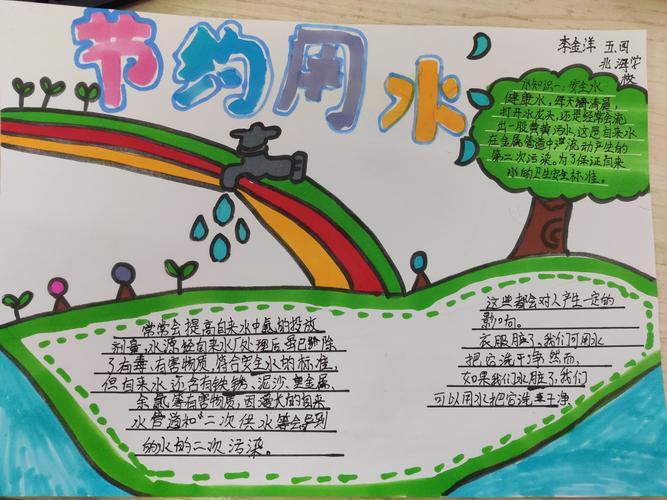 节约用水
李金洋 五四
北湖学校
水知识一:安全水
健康水,每天清晨,
打开水龙头,还是经常会流
出一股黄黄污水,这是自来水
在金属管道中流动产生的
第二次污染。为了保证自来
水的卫生安全标准。
常常会提高自来水中氯的投放
剂量,水源经自来水厂处理后,虽已删除
了有毒、有害物质,符合安全水的标准,
但自来水还含有铁锈、泥沙、重金属、
余氯等有害物质,因漫长的自来
水管道和"二次供水等会导到
的水的二次污染。
这些都会对人产生一定的
影响。
衣服脏了,我们可用水
把它洗干净然而,
如果我们水脏了,我们
可以用水把它洗干净